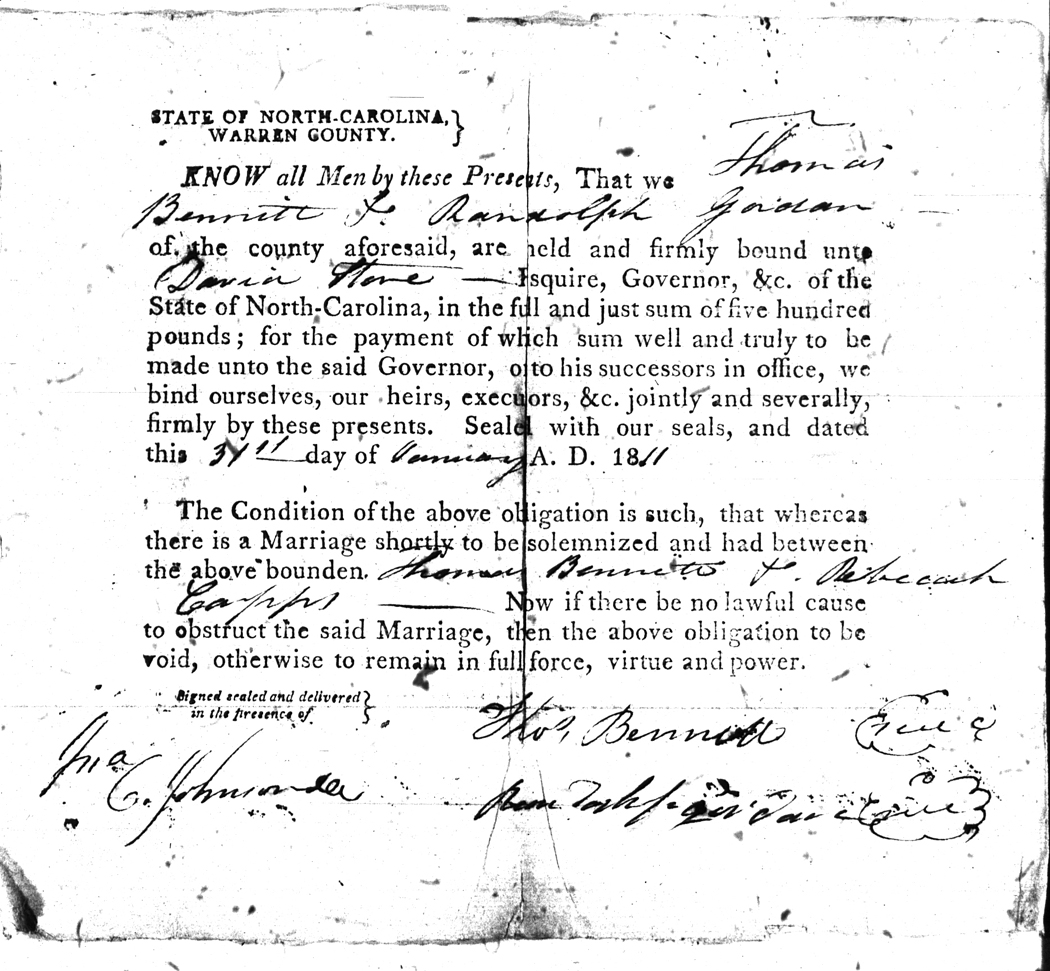 STATE OF NORTH-CAROLINA,}
WARREN COUNTY.
KNOW all Men by these Presents, That we Thomas
Bennitt & Randolph Gordan
of the county aforesaid, are held and firmly bound unto
David Stone Esquire, Governor, &c. of the
State of North-Carolina, in the full and just sum of five hundred
pounds; for the payment of which sum well and truly to be
made unto the said Governor, or to his successors in office, we
bind ourselves, our heirs, executors, &c. jointly and severally,
firmly by these presents. Sealed with our seals, and dated
this 31st day of January A. D. 1811
The Condition of the above obligation is such, that whereas
there is a Marriage shortly to be solemnized and had between
the above bounden. Thomas Bennett & Rebecah
Capps Now if there be no lawful cause
to obstruct the said Marriage, then the above obligation to be
void, otherwise to remain in full force, virtue and power.
Signed sealed and delivered}
in the presence of
Thos Bennett Seal
Jna
C. Johnson
Seal